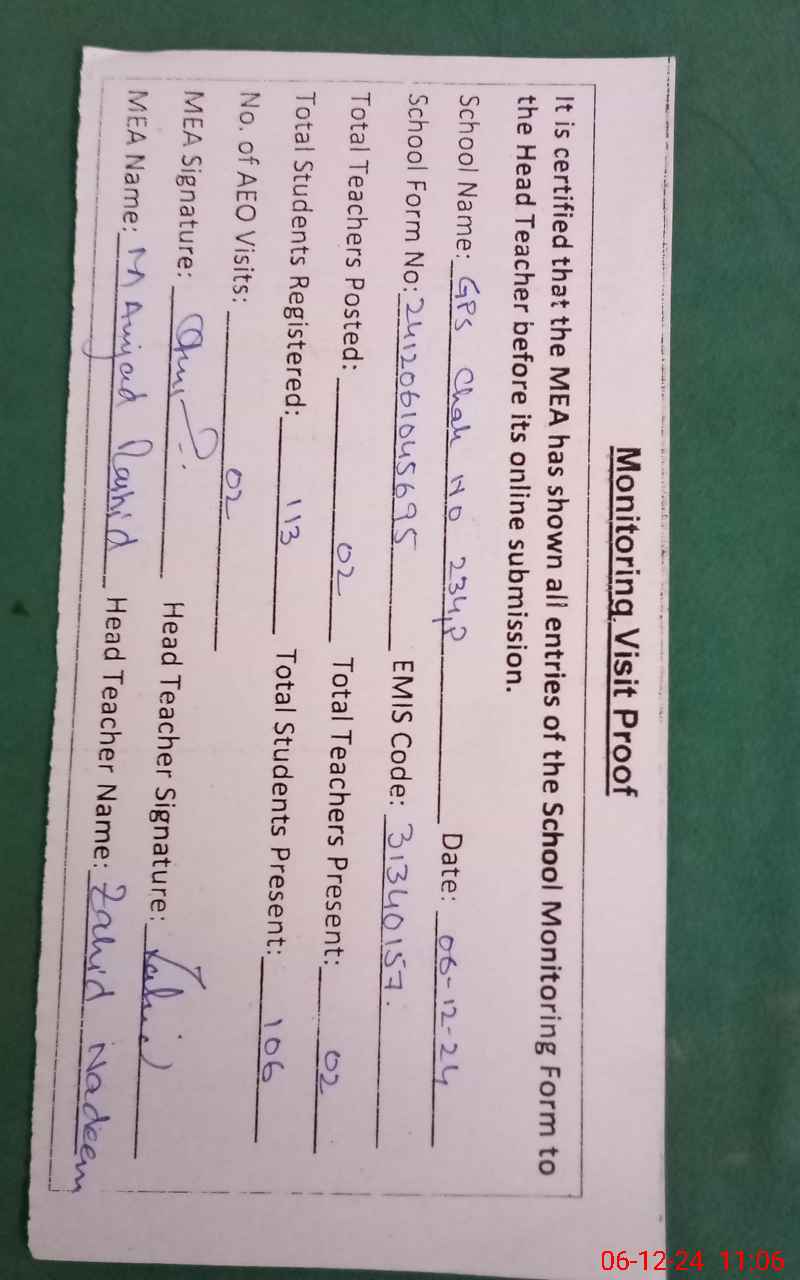 Monitoring Visit Proof
It is certified that the MEA has shown all entries of the School Monitoring Form to
the Head Teacher before its online submission.
School Name: GPS Chak NO 234,P Date: 06-12-24
School Form No: 2412061045695 EMIS Code: 31340157.
Total Teachers Posted: 02 Total Teachers Present: 02
Total Students Registered: 113 Total Students Present: 106
No. of AEO Visits: 02
MEA Signature: Head Teacher Signature: Zahid
MEA Name: M Amjad Rashid Head Teacher Name: Zahid Nadeem
06-12-24 11:06